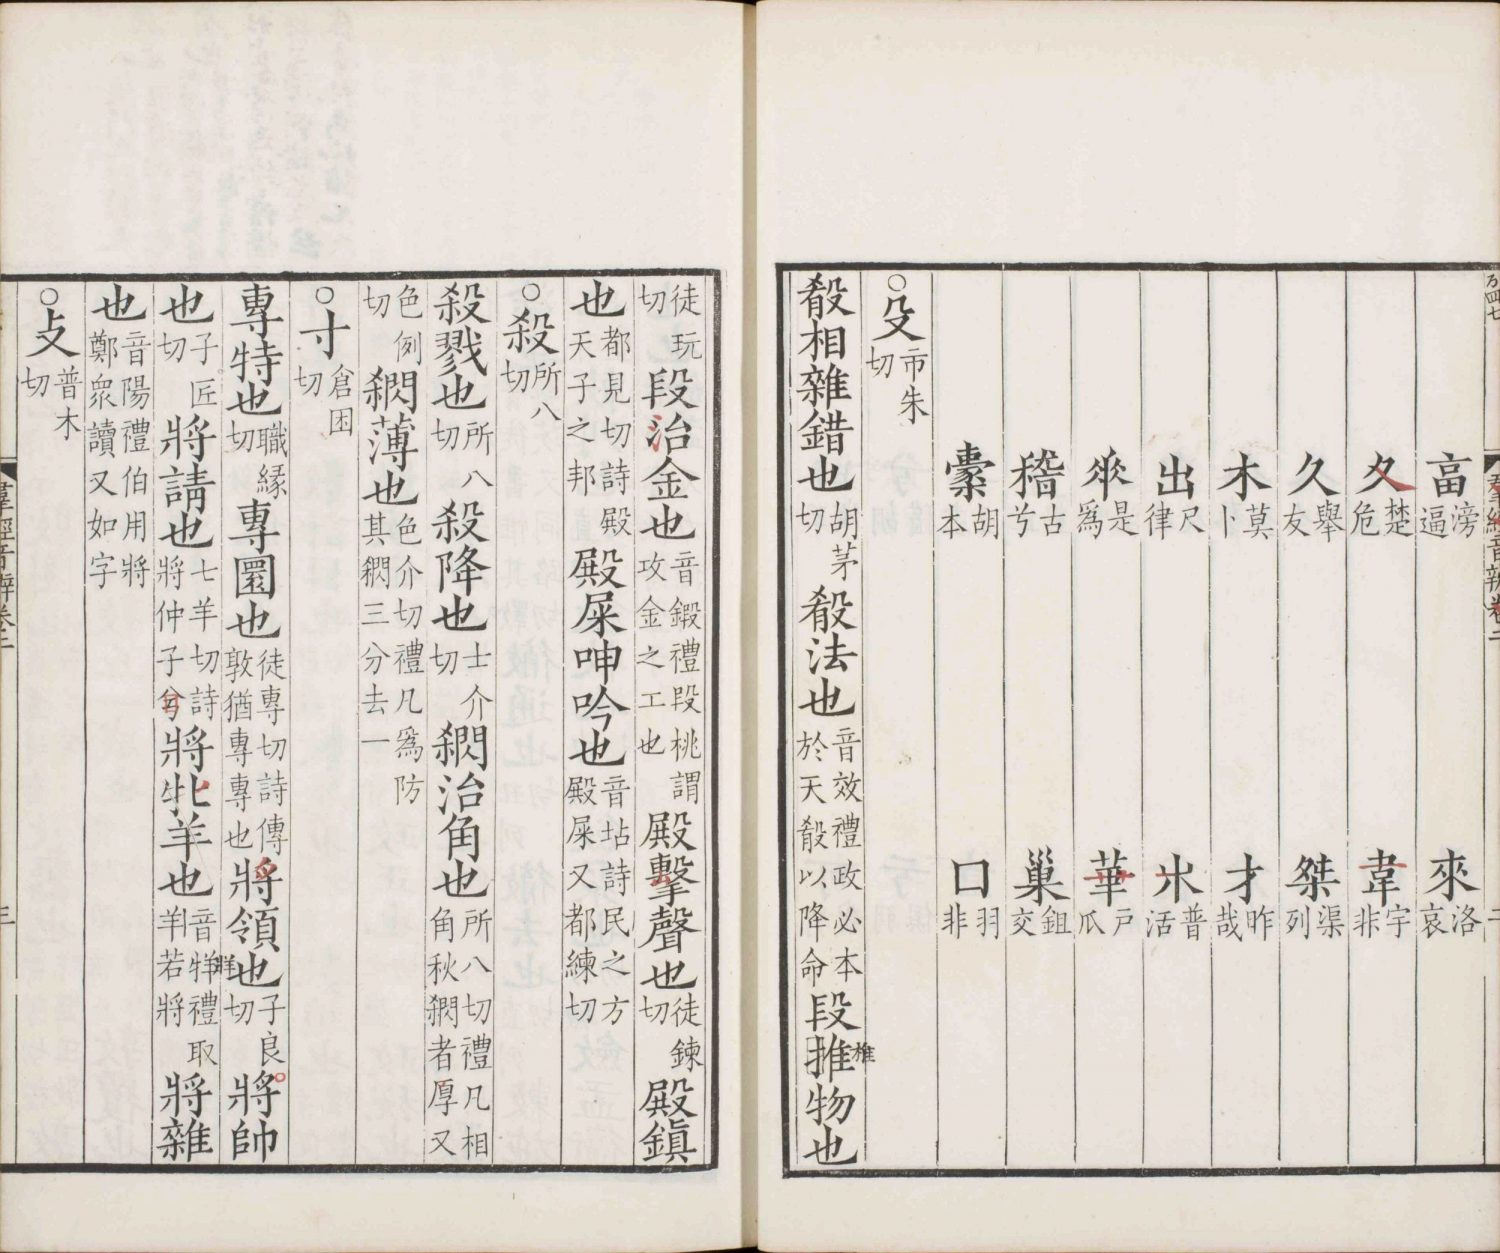 畗滂逼 來洛哀
夂楚危 韋宇非
久舉友 桀渠列
木莫卜 才昨哉
出尺律 𣎵普活
𠂹是爲 華戸瓜
稽古兮 巢鉏交
㯻胡本 口羽非
○殳市朱切
殽相雜錯也胡茅切殽法也音效禮政必本於天殽以降命段推物也
徒玩切段治金也音鍛禮段桃謂攻金之工也殿擊聲也徒鍊切殿鎭
也都見切詩殿天子之邦殿屎呻吟也音坫詩民之方殿屎又都練切
○殺所八切
殺戮也所八切殺降也士介切䦪治角也所八切禮凡相角秋䦪者厚又
色例切䦪薄也色介切禮凡爲防其䦪三分去一
○寸倉困切
專特也職緣切專圜也徒專切詩傳敦猶專專也將領也子良切將帥
也子匠切將請也七羊切詩將仲子兮將牝羊也音牂禮取羊若將將雜
也音陽禮伯用將鄭衆讀又如字
○攴普木切
羣經音辨卷二
羣經音辨卷二